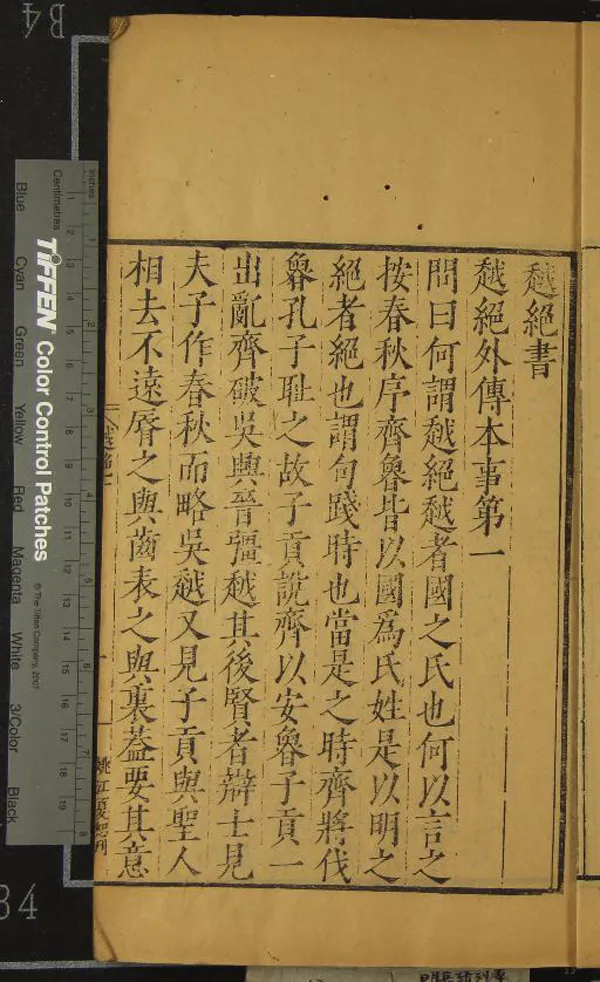 越絕書
越絕外傳本事第一
問曰何謂越絕越者國之氏也何以言之
按春秋序齊魯皆以國爲氏姓是以明之
絕者絕也謂句踐時也當是之時齊將伐
魯孔子恥之故子貢說齊以安魯子貢一
出亂齊破吳興晉彊越其後賢者辯士見
夫子作春秋而略吳越又見子貢與聖人
相去不遠脣之與齒表之與裏蓋要其意
姚江夏恕刊
B4
Inches
Centimetres
TIFFEN Color Control Patches
© The Tiffen Company, 2007
Blue Cyan Green Yellow Red Magenta White 3/Color Black
B4